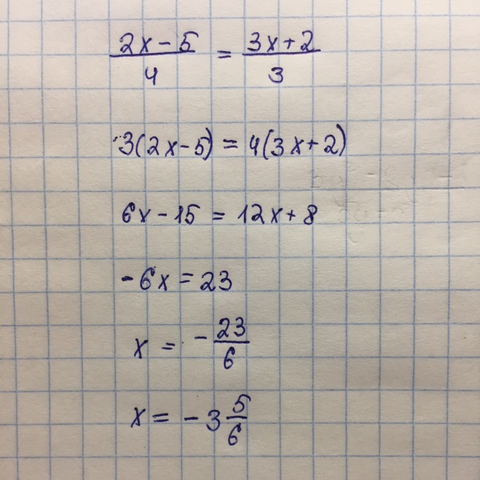 (2x-5)/4 = (3x+2)/3
3(2x-5) = 4(3x+2)
6x-15 = 12x+8
-6x = 23
x = -23/6
x = -3 5/6